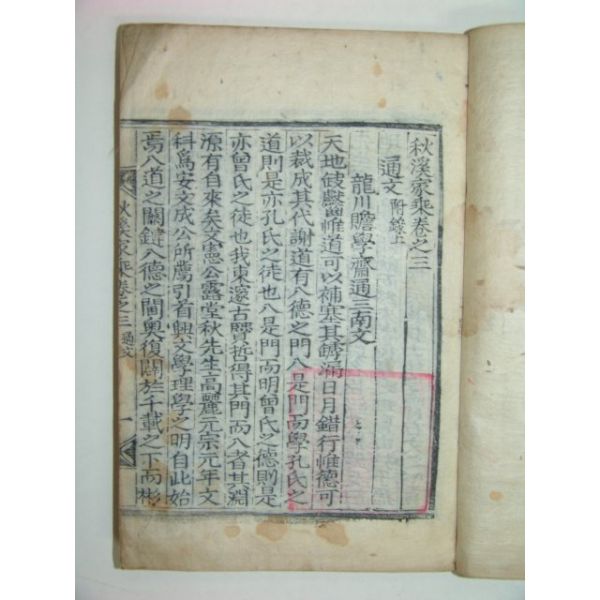 秋溪家乘卷之三
通文 附錄上
龍川贍學齋通三南文
天地缺齾惟道可以補塞其罅漏日月錯行惟德可
以裁成其代謝道有八德之門入是門而學孔氏之
道則是亦孔氏之徒也入是門而明曾氏之德則是
亦曾氏之徒也我東邃古賢哲得其門而入者其淵
源有自來矣文憲公露堂秋先生高麗元宗元年文
科爲安文成公所薦引首興文學理學之明自此始
焉八道之關鍵八德之閫奧復闢於千載之下而彬
秋溪家乘卷之三 通文 一